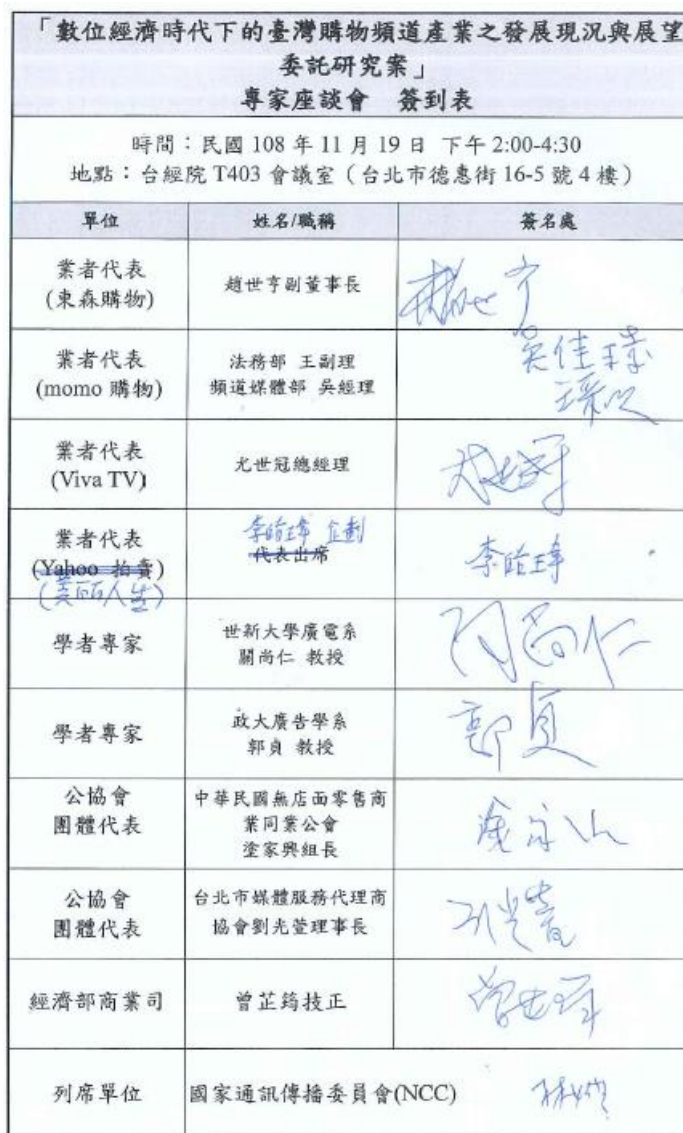 「數位經濟時代下的臺灣購物頻道產業之發展現況與展望
委託研究案」
專家座談會 簽到表
時間：民國 108 年 11 月 19 日 下午 2:00-4:30
地點：台經院 T403 會議室（台北市德惠街 16-5 號 4 樓）
單位 姓名/職稱 簽名處
業者代表
(東森購物)
趙世亨副董事長
業者代表
(momo 購物)
法務部 王副理
頻道媒體部 吳經理
業者代表
(Viva TV)
尤世冠總經理
業者代表
(Yahoo 拍賣)
(美麗人生)
企劃
代表出席
學者專家
世新大學廣電系
關尚仁 教授
關尚仁
學者專家
政大廣告學系
郭貞 教授
郭貞
公協會
團體代表
中華民國無店面零售商
業同業公會
塗家興組長
公協會
團體代表
台北市媒體服務代理商
協會劉光萱理事長
經濟部商業司
曾芷筠技正
列席單位
國家通訊傳播委員會(NCC)